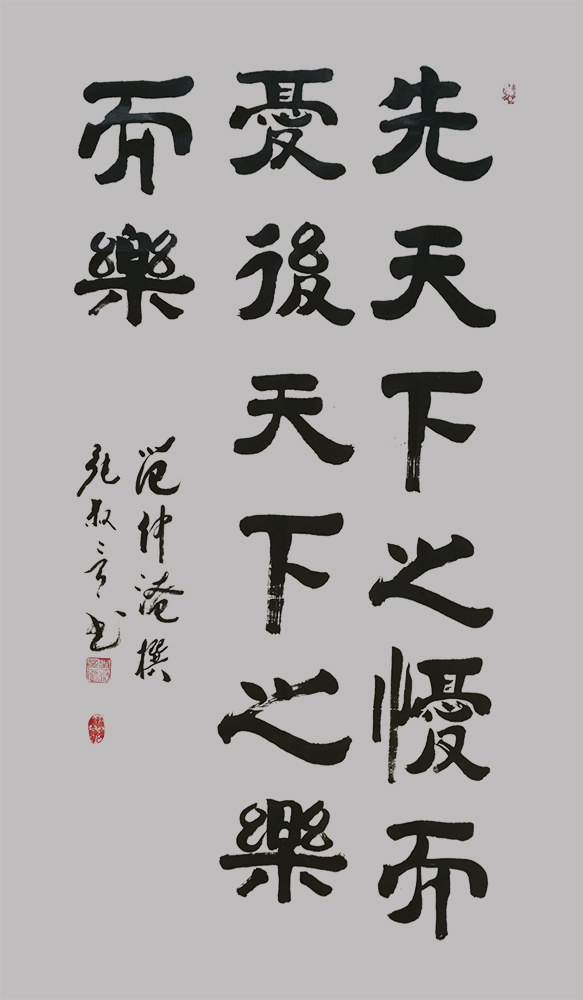 先天下之懮而
憂後天下之樂
而樂
范仲淹撰
張叔言書